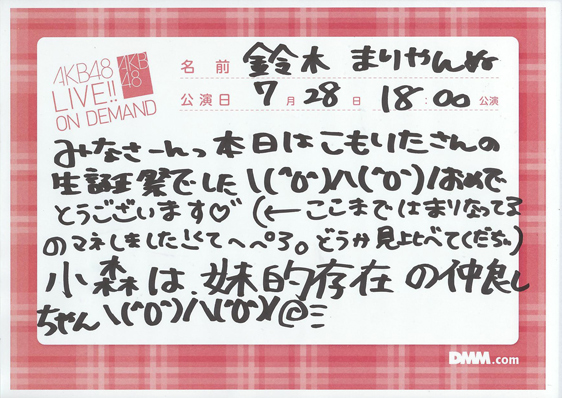 AKB48
LIVE!!
ON DEMAND
AKB
48
名前 鈴木 まりやんぬ
公演日 7月28日 18:00公演
みなさーんっ本日はこもりたさんの
生誕祭でした\(^o^)/\(^o^)/おめで
とうございます♡(←ここまではまりなってる
のマネしました!てへぺろ。どうか見比べてくだちゃ)
小森は、妹的存在の仲良し
ちゃん\(^o^)/\(^o^)/@ミ
DMM.com